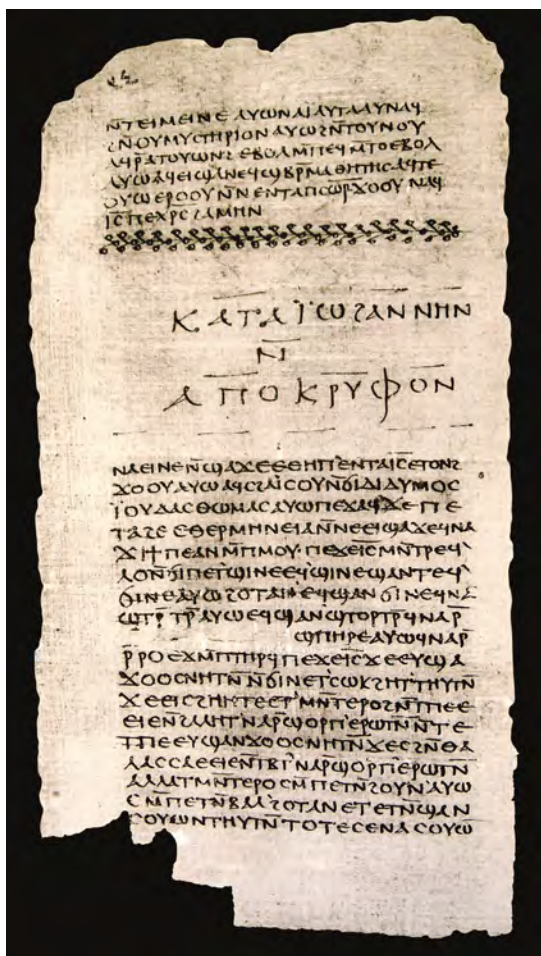 ⲛ̄ⲧⲉⲓⲙⲉⲓⲛⲉ ⲁⲩⲱ ⲛⲁⲓ ⲁⲩⲧⲁⲁⲩ ⲛⲁϥ
ϩⲛⲟⲩⲙⲩⲥⲧⲏⲣⲓⲟⲛ ⲁⲩⲱ ϩⲛ̄ⲧⲟⲩⲛⲟⲩ
ⲁϥⲣ̄ⲁⲧⲟⲩⲱⲛϩ ⲉⲃⲟⲗ ⲙ̄ⲡⲉϥⲙⲧⲟ ⲉⲃⲟⲗ
ⲁⲩⲱ ⲁϥⲉⲓ ϣⲁⲛⲉϥϣⲃⲣ̄ⲙⲁⲑⲏⲧⲏⲥ ⲁϥⲧⲉ
ⲟⲩⲱ ⲉⲣⲟⲟⲩ ⲛ̄ⲛⲉⲛⲧⲁⲡⲥⲱⲣ ϫⲟⲟⲩ ⲛⲁϥ
ⲓ̅ⲥ̅ ⲡⲉⲭⲣ̅ⲥ̅ ϩⲁⲙⲏⲛ
ⲕⲁⲧⲁ ⲓ̈ⲱϩⲁⲛⲛⲏⲛ
ⲛ̄
ⲁⲡⲟⲕⲣⲩⲫⲟⲛ
ⲛⲁⲉⲓ ⲛⲉ ⲛ̄ϣⲁϫⲉ ⲉⲑⲏⲡ ⲉⲛⲧⲁⲓ̅ⲥ̅ ⲉⲧⲟⲛϩ
ϫⲟⲟⲩ ⲁⲩⲱ ⲁϥⲥϩⲁⲓ̈ⲥⲟⲩ ⲛ̄ϭⲓ ⲇⲓⲇⲩⲙⲟⲥ
ⲓ̈ⲟⲩⲇⲁⲥ ⲑⲱⲙⲁⲥ ⲁⲩⲱ ⲡⲉϫⲁϥ ϫⲉ ⲡⲉ
ⲧⲁϩⲉ ⲉⲑⲉⲣⲙⲏⲛⲉⲓⲁ ⲛ̄ⲛⲉⲉⲓϣⲁϫⲉ ϥⲛⲁ
ϫⲓϯⲡⲉ ⲁⲛ ⲙ̄ⲡⲙⲟⲩ ⲡⲉϫⲉ ⲓ̅ⲥ̅ ⲙⲛ̄ⲧⲣⲉϥ
ⲗⲟ ⲛ̄ϭⲓ ⲡⲉⲧϣⲓⲛⲉ ⲉϥϣⲓⲛⲉ ϣⲁⲛⲧⲉϥ
ϭⲓⲛⲉ ⲁⲩⲱ ϩⲟⲧⲁⲛ ⲉϥϣⲁⲛϭⲓⲛⲉ ϥⲛⲁ
ϣⲧⲣ̄ⲧⲣ̄ ⲁⲩⲱ ⲉϥϣⲁⲛϣⲧⲟⲣⲧⲣ̄ ϥⲛⲁⲣ̄
ϣⲡⲏⲣⲉ ⲁⲩⲱ ϥⲛⲁⲣ̄
ⲣ̄ⲣⲟ ⲉϫⲙ̄ⲡⲧⲏⲣϥ ⲡⲉϫⲉ ⲓ̅ⲥ̅ ϫⲉ ⲉⲩϣⲁ
ϫⲟⲟⲥ ⲛⲏⲧⲛ̄ ⲛ̄ϭⲓ ⲛⲉⲧⲥⲱⲕ ϩⲏⲧ ⲧⲏⲩⲧⲛ̄
ϫⲉ ⲉⲓⲥϩⲏⲏⲧⲉ ⲉⲧⲙⲛ̄ⲧⲉⲣⲟ ϩⲛ̄ⲧⲡⲉ ⲉ
ⲉⲓⲉ ⲛ̄ϩⲁⲗⲏⲧ ⲛⲁⲣ̄ϣⲟⲣⲡ ⲉⲣⲱⲧⲛ̄ ⲛ̄ⲧⲉ
ⲧⲡⲉ ⲉⲩϣⲁⲛϫⲟⲟⲥ ⲛⲏⲧⲛ̄ ϫⲉ ⲥϩⲛ̄ⲑⲁ
ⲗⲁⲥⲥⲁ ⲉⲉⲓⲉ ⲛ̄ⲧⲃⲧ ⲛⲁⲣ̄ϣⲟⲣⲡ ⲉⲣⲱⲧⲛ̄
ⲁⲗⲗⲁ ⲧⲙⲛ̄ⲧⲉⲣⲟ ⲥⲙ̄ⲡⲉⲧⲛ̄ϩⲟⲩⲛ ⲁⲩⲱ
ⲥⲙ̄ⲡⲉⲧⲛ̄ⲃⲁⲗ ϩⲟⲧⲁⲛ ⲉⲧⲉⲧⲛ̄ϣⲁⲛ
ⲥⲟⲩⲱⲛ ⲧⲏⲩⲧⲛ̄ ⲧⲟⲧⲉ ⲥⲉⲛⲁⲥⲟⲩⲱ